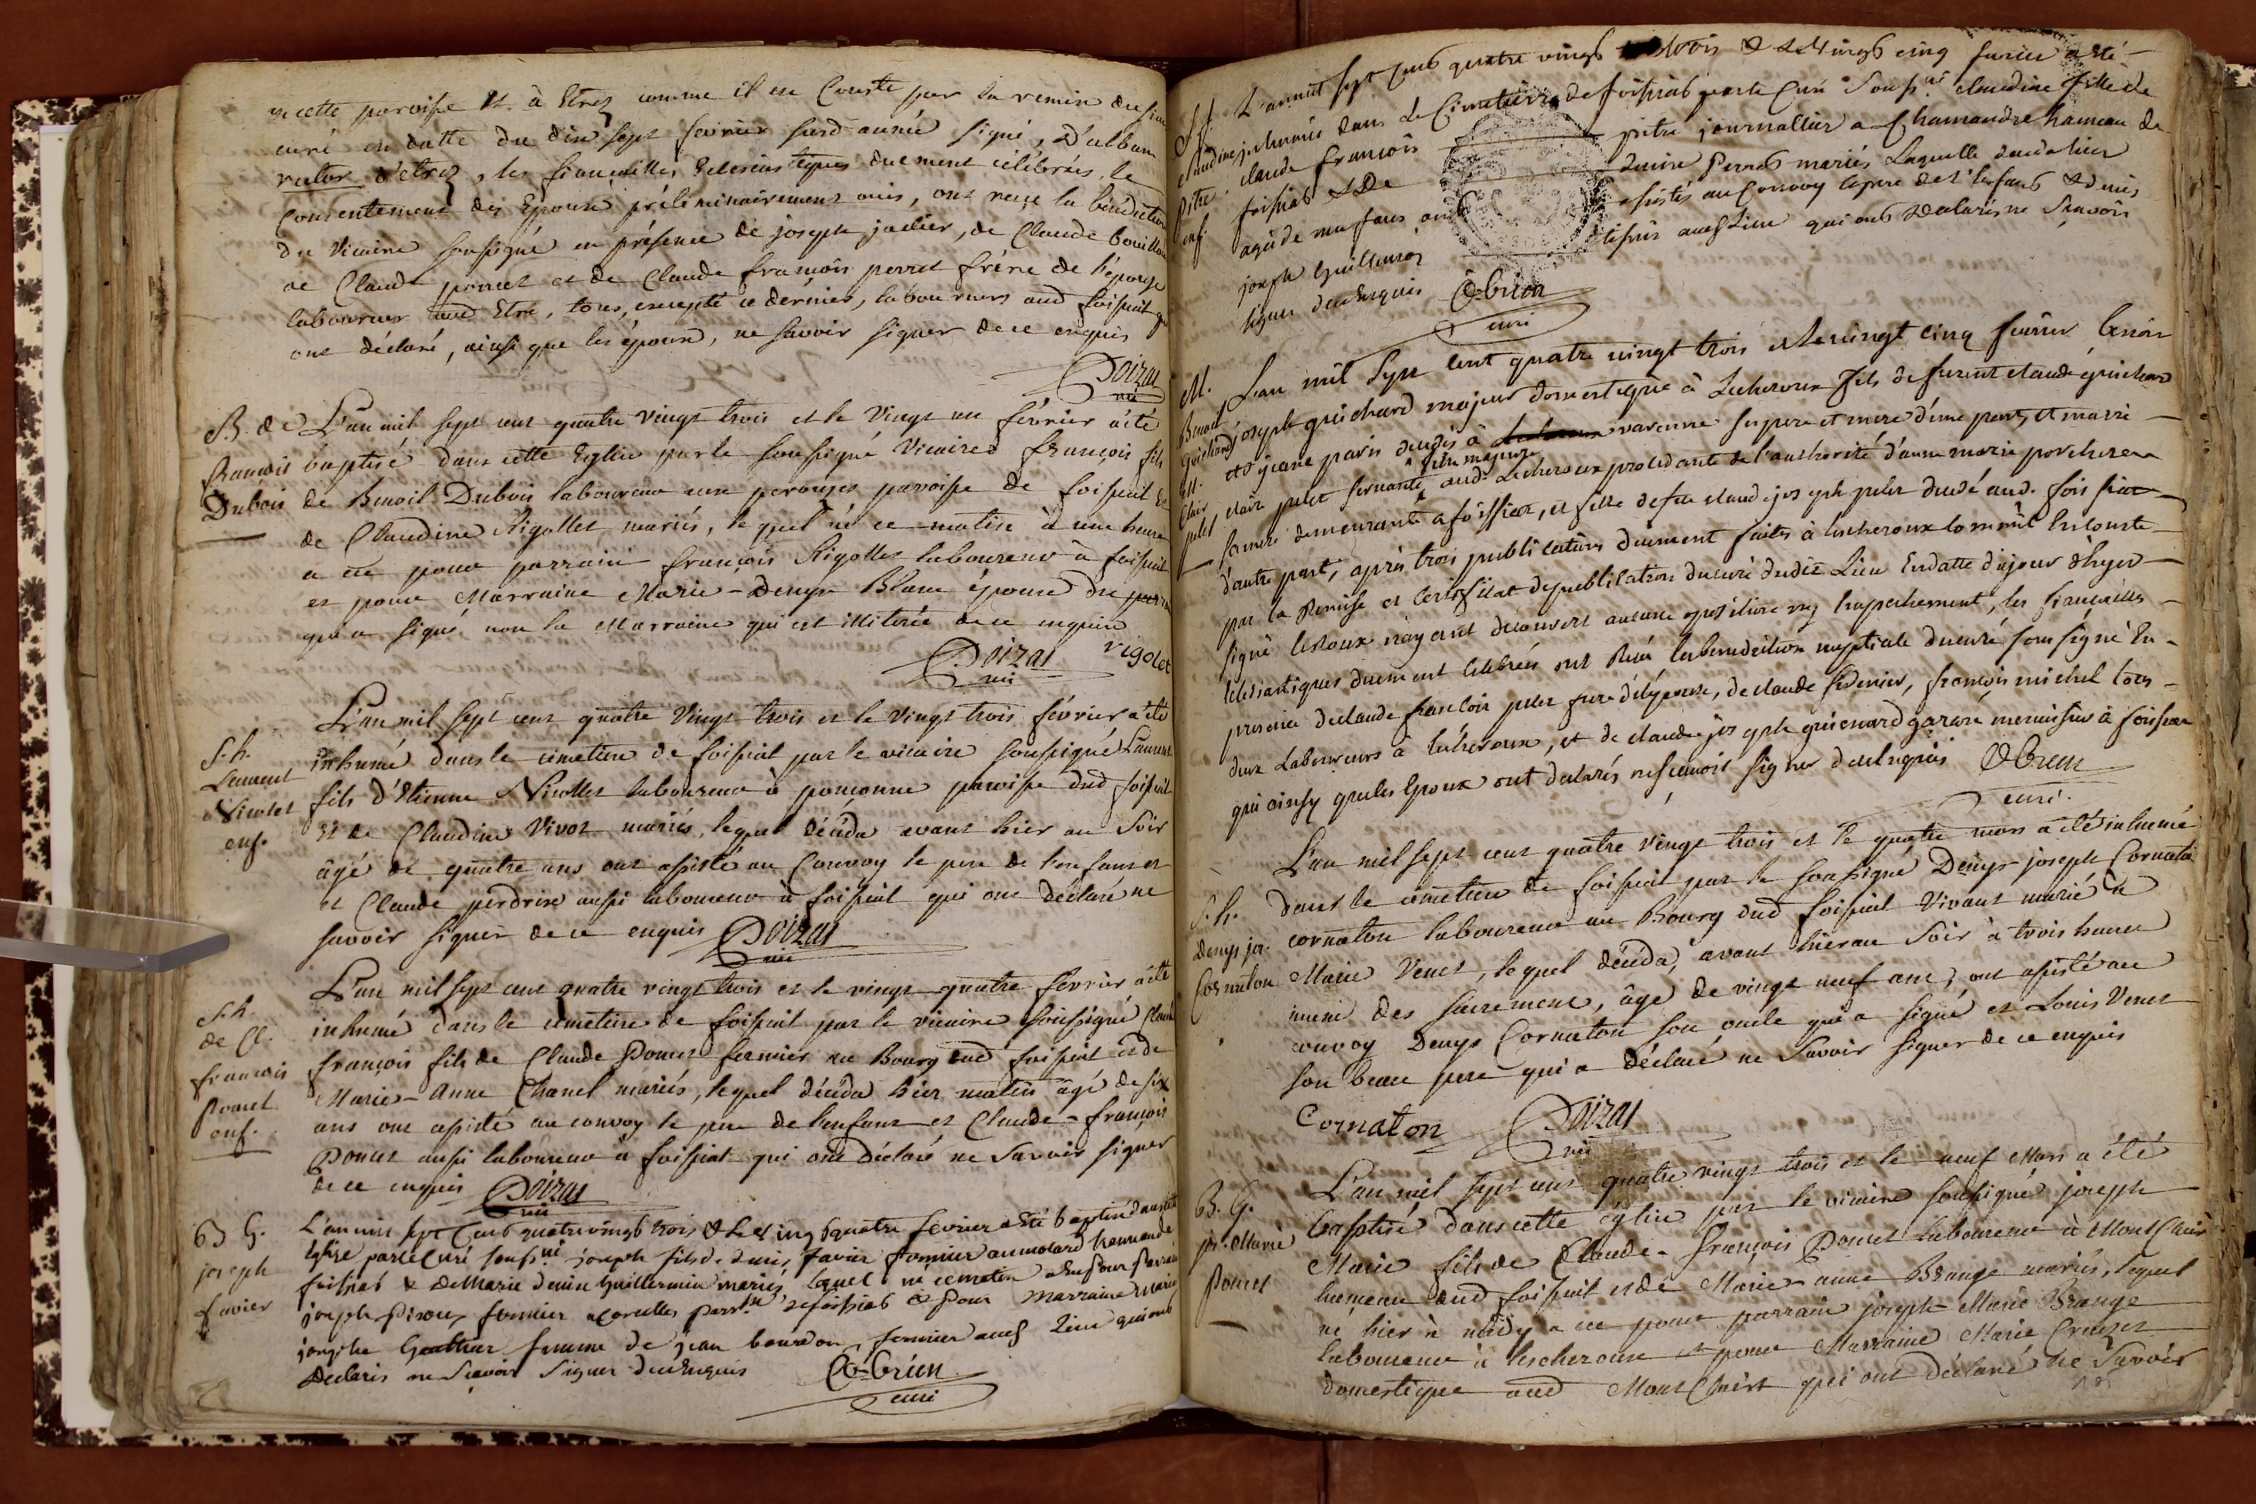 en cette paroisse et à Etrez comme il en Conste par la remise du sieur
curé en datte du dix sept fevrier susd. année signé, D'alban
recteur d'etrez, les fiançailles Eclesiastiques duement célébrées, le
Consentement des Epoux préliminairement ouis, ont reçu la bénédiction
du Vicaire soussigné en présence de joseph jadier, de Claude bouillou
de Claude poncet et de Claude françois perret frère de l'épouse
laboureurs aud Etré, tous, excepté ce dernier, laboureurs aud foissiat qui
ont déclaré, ainsi que les époux, ne savoir signer de ce enquis
Doizat
vic
B. de L'an mil sept cent quatre vingt trois et le vingt un février a été
françois baptisé dans cette Eglise par le soussigné Vicaire françois fils
Dubois de Benoit Dubois laboureur aux perouses paroisse de foissiat Et
de Claudine Rigollet mariés, lequel né ce matin à une heure
a eu pour parrain françois Rigollet laboureur à foissiat
et pour Marraine Marie-Denyse Blanc épouse du parrain
qui a signé non la Marraine qui est illiterée de ce enquise
Doizat rigolet
vic
L'an mil sept cent quatre vingt trois et le vingt trois février a été
S. h. inhumé dans le cimetiere de foissiat par le vicaire soussigné Laurent
Laurent fils d'Etienne Nicollet laboureur à ponconne paroisse dud foissiat
Nicolet et de Claudine Vivot mariés, lequel décéda avant hier au soir
enf. âgé de quatre ans ont assisté au Convoy le pere de l'enfant et
et Claude perdrix aussi laboureur à foissiat qui ont déclaré ne
savoir signer de ce enquis Doizat
vic
L'an mil sept cent quatre vingt trois et le vingt quatre février a été
S. h. inhumé dans le cimetiere de foissiat par le vicaire soussigné Claude
de Cl. françois fils de Claude Poncet fermier au Bourg dud foissiat et de
françois Marie-Anne Chanel mariés, lequel décéda hier matin âgé de six
Poncet ans ont assisté au convoy le pere de l'enfant et Claude-françois
enf. Poncet aussi laboureur à foissiat qui ont déclaré ne savoir signer
de ce enquis Doizat
vic
B G. L'an mil sept Cent quatre vingt trois & le vingt quatre fevrier a eté baptisé dans cette
joseph Eglise par le Curé souss.né joseph fils de denis favier fermier au molard hameau de
favier foissiat & de Marie denise Guillermin mariés lequel né ce matin a eu pour Parrain
joseph Piroux fermier a Cornelles parr.sse de foissiat & pour marraine marie
josephe Gauthier femme de jean bourdon, fermier aud Lieu qui ont
Declarés ne Scavoir Signer de ce Enquis OBrien
curé
S. f. L'an mil sept Cent quatre vingt trois & le vingt cinq fevrier a eté
claudine inhumée dans le Cimetiere de foissiat par le Curé Souss.né claudine fille de
pitre claude françois pitre journallier a Chamandre hameau de
enf. foissiat & De denise Pernet mariés Laquelle deceda hier
agée de neuf ans ont assistés au Convoy le pere de l'enfant & denis
joseph Guillermin tissier aud Lieu qui ont declarés ne Scavoir
signer de ce Enquis OBrien
curé
M. L'an mil Sept cent quatre vingt trois et le vingt cinq fevrier benoit
Benoit joseph guichard majeur domestique à Lecheroux fils de furent claude guichard
guichard et de jeane paris decedés à varenne ses pere et mere d'une part, et marie
Et. fille majeure
Clair claire pelet servante aud. Lecheroux procedante de l'authorité d'anne marie porcheron
pelet sa mere demeurante a foissiat, et fille de feu claude joseph pelet decedé aud. foissiat
d'autre part, après trois publications duement faites à lescheroux comm'il En Conste
par la Remise et Certificat de publication du curé dudit Lieu En datte du jour d'hyer
signé Leroux n'ayant découvert aucune oposition ny Empechement, les fiançailles
Eclesiastiques duement celebrées ont Reçu la benediction nuptiale du curé soussigné En
presence de claude françois pelet frere de l'épouse, de claude foderier, françois michel tous
deux Laboureurs à lescheroux, et de claude joseph guichard garçon menuisier à foissiat
qui ainsy que les Epoux ont declarés ne scavoir signer de ce Enquis OBrien
curé
L'an mil sept cent quatre vingt trois et le quatre mars a été inhumé
S. h. dans le cimetiere de foissiat par le soussigné Denys-joseph Cornaton
Denys jos. cornaton laboureur au Bourg dud foissiat Vivant marié à
Cornaton Marie Venet, lequel décéda, avant hier au soir à trois heures
muni des sacrements, âgé de vingt neuf ans, ont assisté au
convoy Denys Cornaton son oncle qui a signé et Louis Venet
son beau pere qui a déclaré ne savoir signer de ce enquis
Cornaton Doizat
vic
L'an mil sept cent quatre vingt trois et le neuf Mars a été
B. G. baptisé dans cette église par le vicaire soussigné joseph
jph. Marie Marie fils de Claude-françois Poncet laboureur à Mont Chair
Poncet hameau dud foissiat et de Marie-anne Brange mariés, lequel
né hier à midy a eu pour parrain joseph-Marie Brange
laboureur à lescheroux et pour Marraine Marie Cruzet
domestique aud Mont Chair qui ont déclaré ne savoir